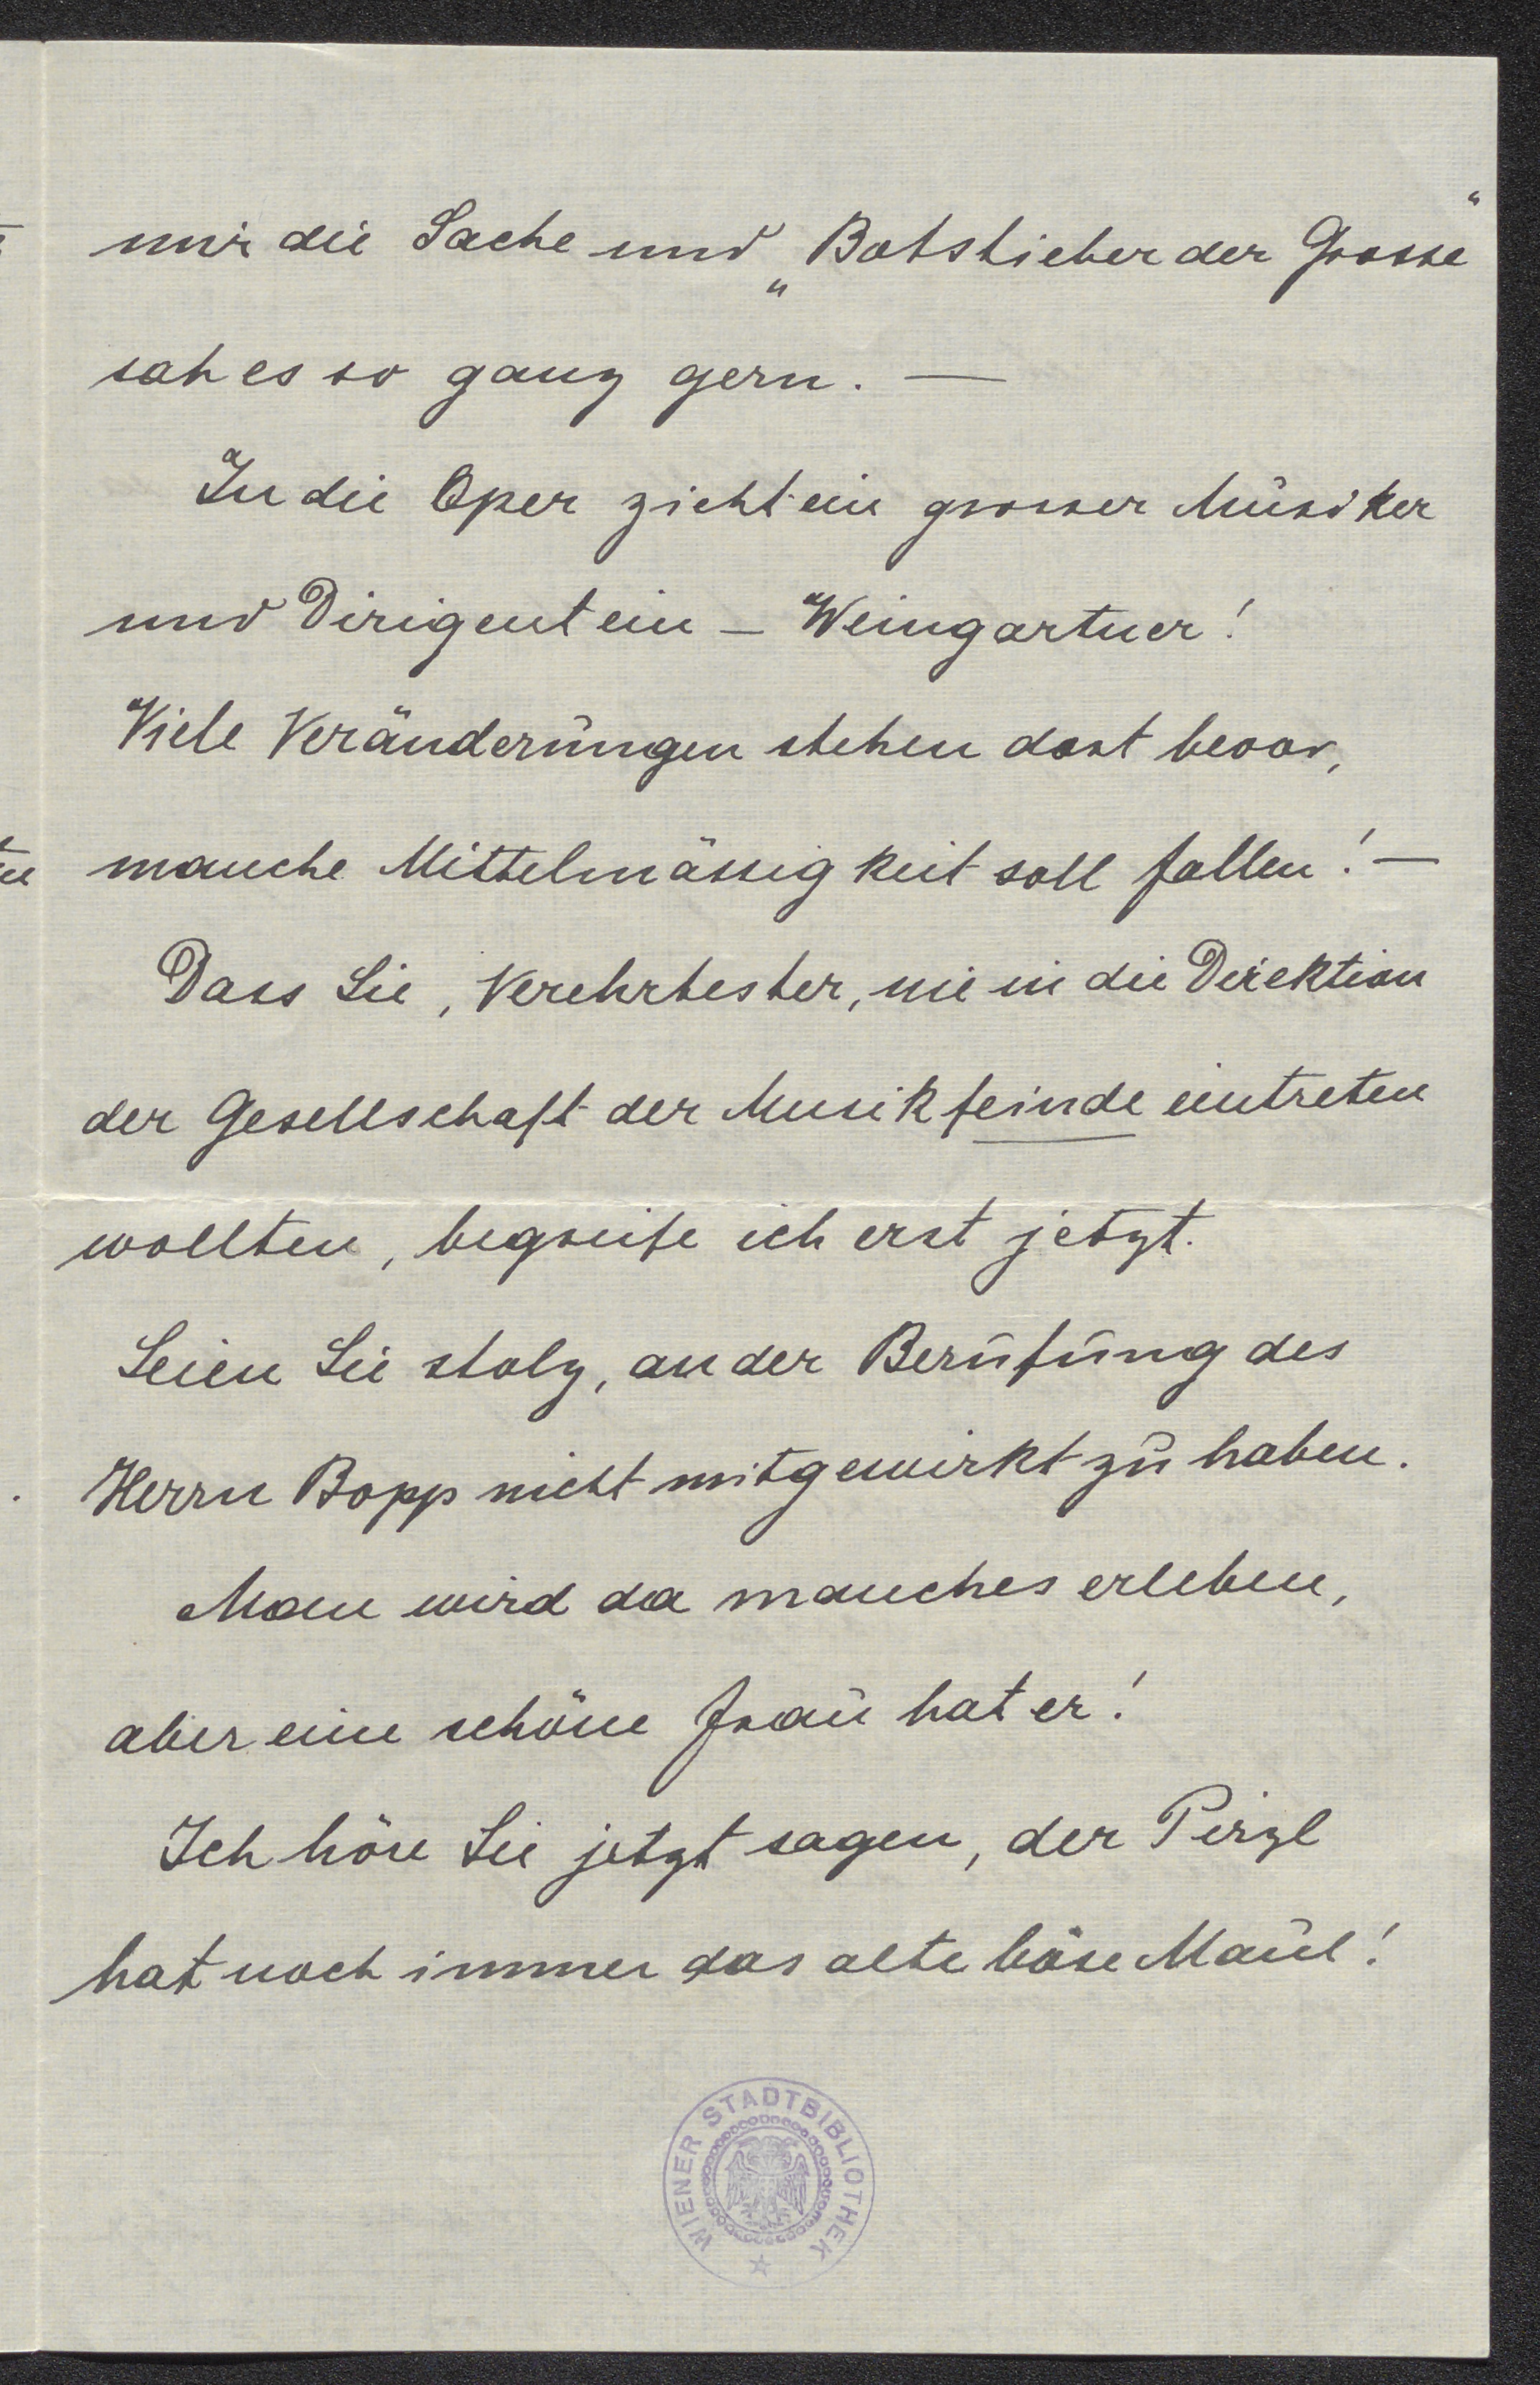 mir die Sache und „Botstieber der Grosse“
sah es so ganz gern. —
In die Oper zieht ein grosser Musiker
und Dirigent ein – Weingartner!
Viele Veränderungen stehen dort bevor,
manche Mittelmässigkeit soll fallen! —
Dass Sie, Verehrtester, nie in die Direktion
der Gesellschaft der Musikfeinde eintreten
wollten, begreife ich erst jetzt.
Seien Sie stolz, an der Berufung des
Herrn Bopp nicht mitgewirkt zu haben.
Man wird da manches erleben,
aber eine schöne Frau hat er!
Ich höre Sie jetzt sagen, der Perzl
hat noch immer das alte böse Maul!
WIENER STADTBIBLIOTHEK